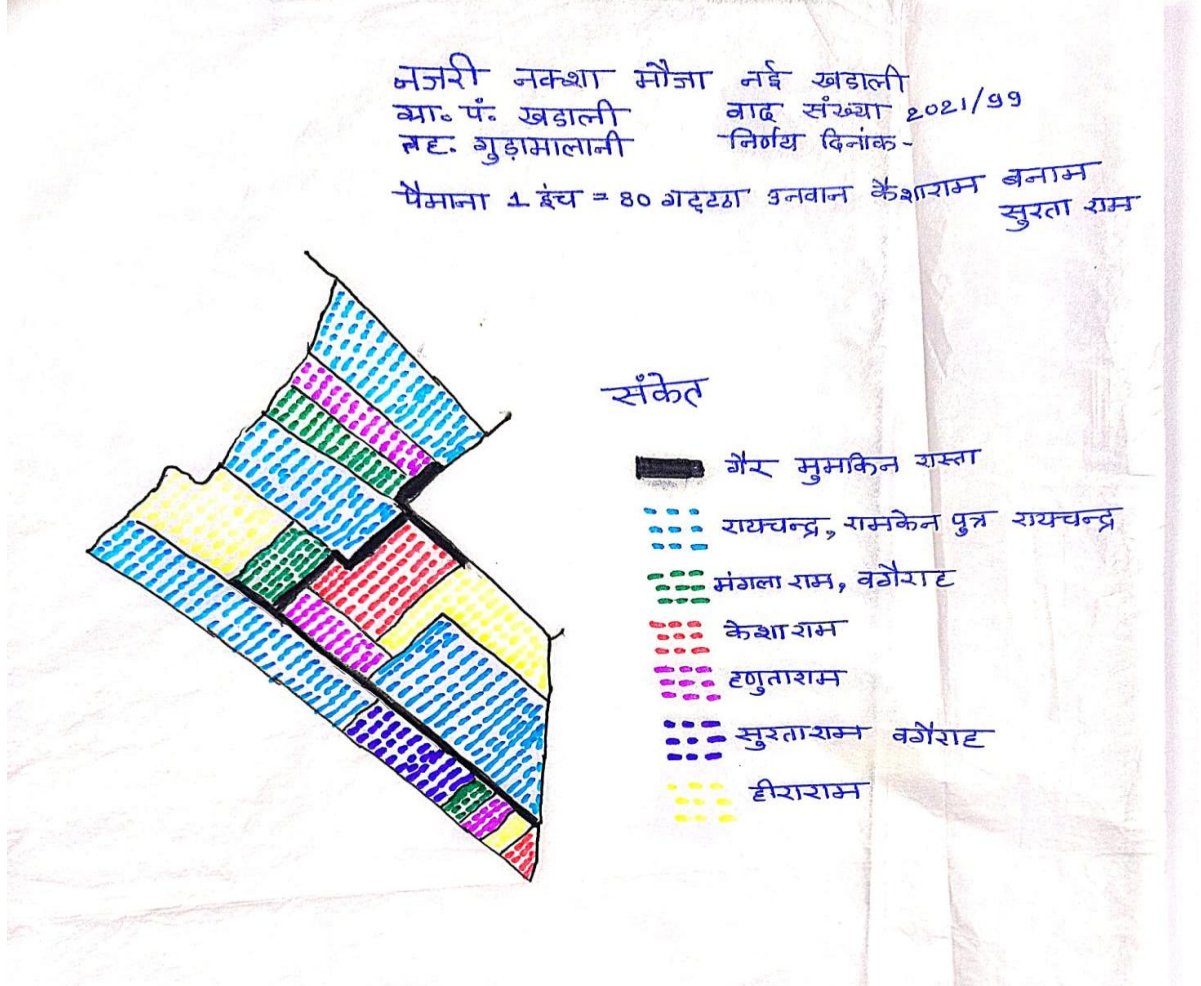 नजरी नक्शा मौजा नई खडाली
ग्रा॰ पं॰ खडाली वाद संख्या 2021/99
तह॰ गुड़ामालानी निर्णय दिनांक-
पैमाना 1 इंच = 80 गट्टठा उनवान कैशाराम बनाम
सुरता राम
संकेत
गैर मुमकिन रास्ता
रायचन्द्र, रामकेन पुत्र रायचन्द्र
मंगला राम, वगैराह
केशाराम
हणुताराम
सुरताराम वगैराह
हीराराम